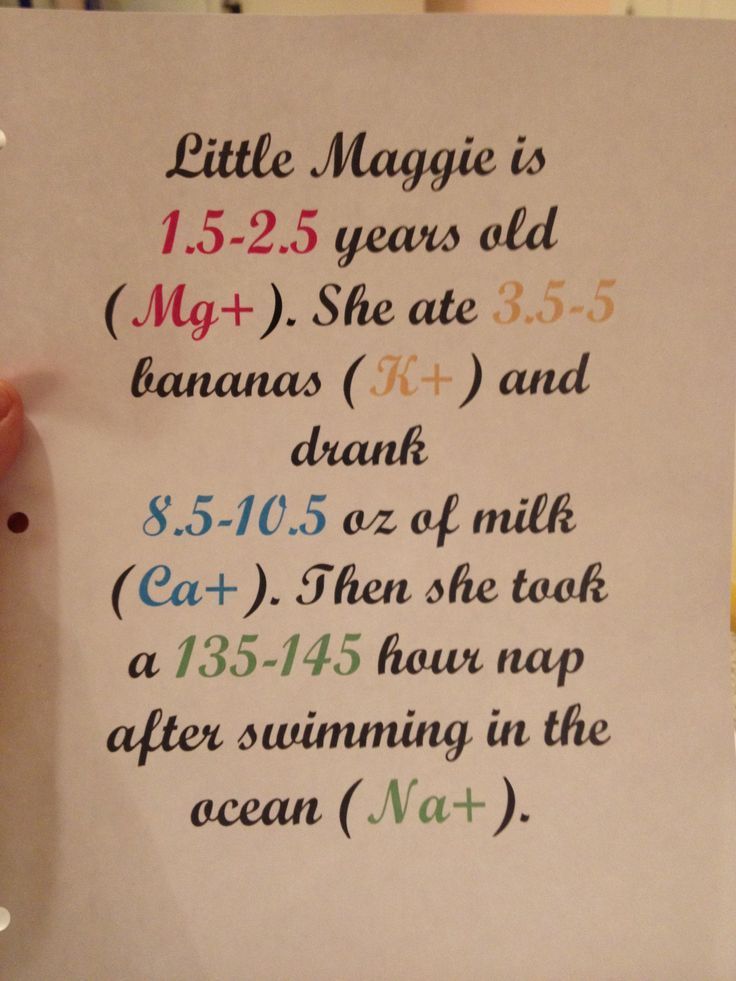 Little Maggie is
1.5-2.5 years old
(Mg+). She ate 3.5-5
bananas (K+) and
drank
8.5-10.5 oz of milk
(Ca+). Then she took
a 135-145 hour nap
after swimming in the
ocean (Na+).